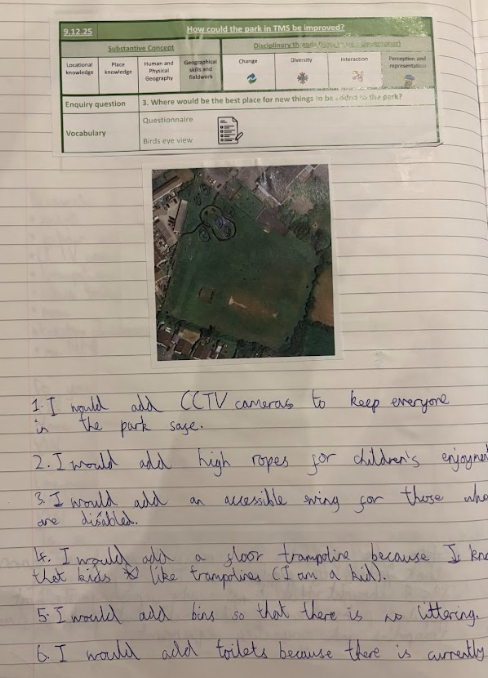 9.12.25 How could the park in TMS be improved?
Substantive Concept
Locational knowledge Place knowledge Human and Physical Geography Geographical skills and fieldwork Change Diversity Interaction Perception and representation
Enquiry question 3. Where would be the best place for new things to be added to the park?
Vocabulary
Questionnaire
Birds eye view
1. I would add CCTV cameras to keep everyone
in the park safe.
2. I would add high ropes for children's
3. I would add an accessible swing for those who
are disabled.
4. I would add a floor trampoline because I
that kids like trampolines (I am a kid).
5. I would add bins so that there is no littering.
6. I would add toilets because there is currently